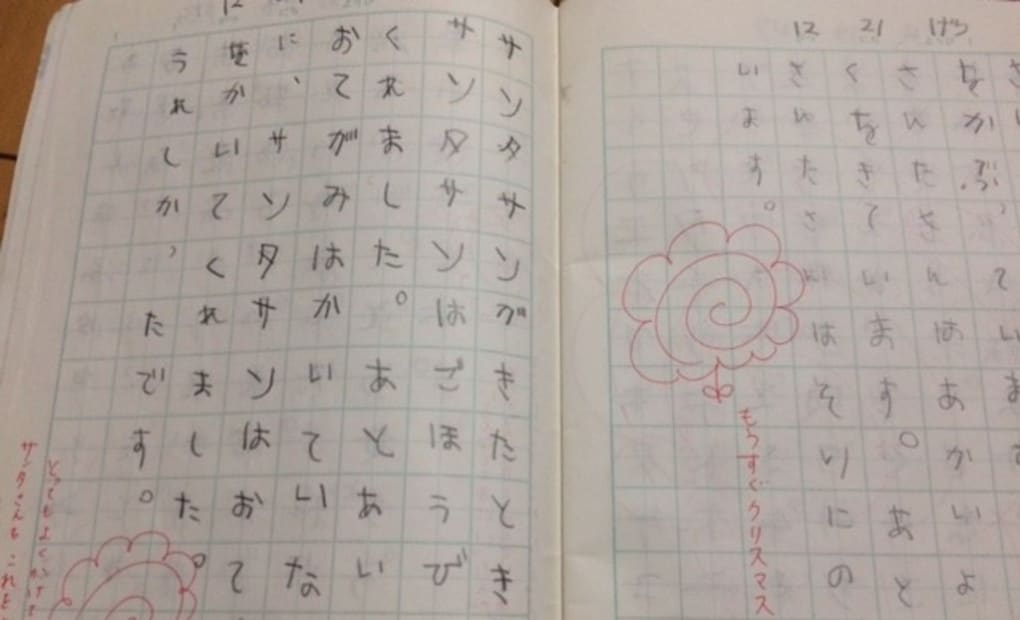 12 21 げつ
さんたさんはあかいよ
くをきています。あと
さんたさんはそりにの
います。
もうすぐクリスマス
サンタサンがきたとき
サンタサンはごほうび
くれました。あとあい
おてがみはかいていな
に、サンタサンはおて
をかいてくれました。
うれしかったです。
とってもよくかけて
サンタさんも これを